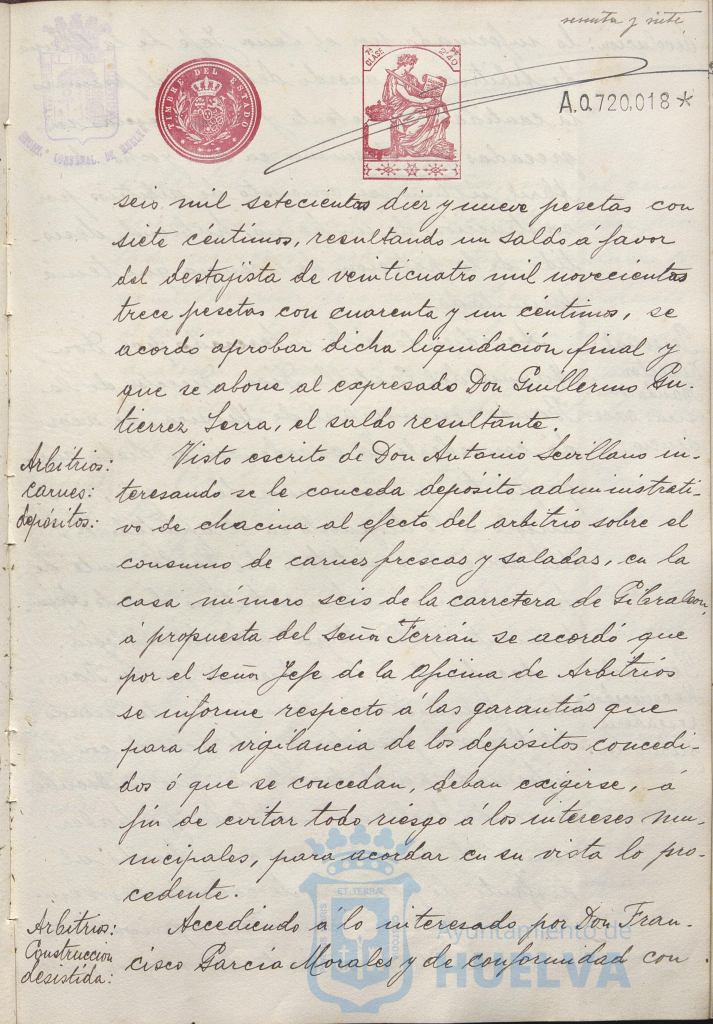 y siete
TIMBRE DEL ESTADO
7ª CLASE
A.0.720,018*
seis mil setecientas diez y nueve pesetas con
siete céntimos, resultando un saldo á favor
del destajista de veinticuatro mil novecientas
trece pesetas con cuarenta y un céntimos, se
acordó aprobar dicha liquidación final y
que se abone al expresado Don Guillermo Gu-
tierrez Serra, el saldo resultante.
Arbitrios:
carnes:
depósitos:
Visto escrito de Don Antonio Sevillano in-
teresando se le conceda depósito administrati-
vo de chacina al efecto del arbitrio sobre el
consumo de carnes frescas y saladas, en la
casa número seis de la carretera de Gibraleon,
á propuesta del señor Terrán se acordó que
por el señor Jefe de la Oficina de Arbitrios
se informe respecto á las garantías que
para la vigilancia de los depósitos concedi-
dos ó que se concedan, deban exigirse, á
fin de evitar todo riesgo á los intereses mu-
nicipales, para acordar en su vista lo pro-
cedente.
Arbitrios:
Construccion
desistida:
Accediendo á lo interesado por Don Fran-
cisco García Morales y de conformidad con
Ayuntamiento de
HUELVA